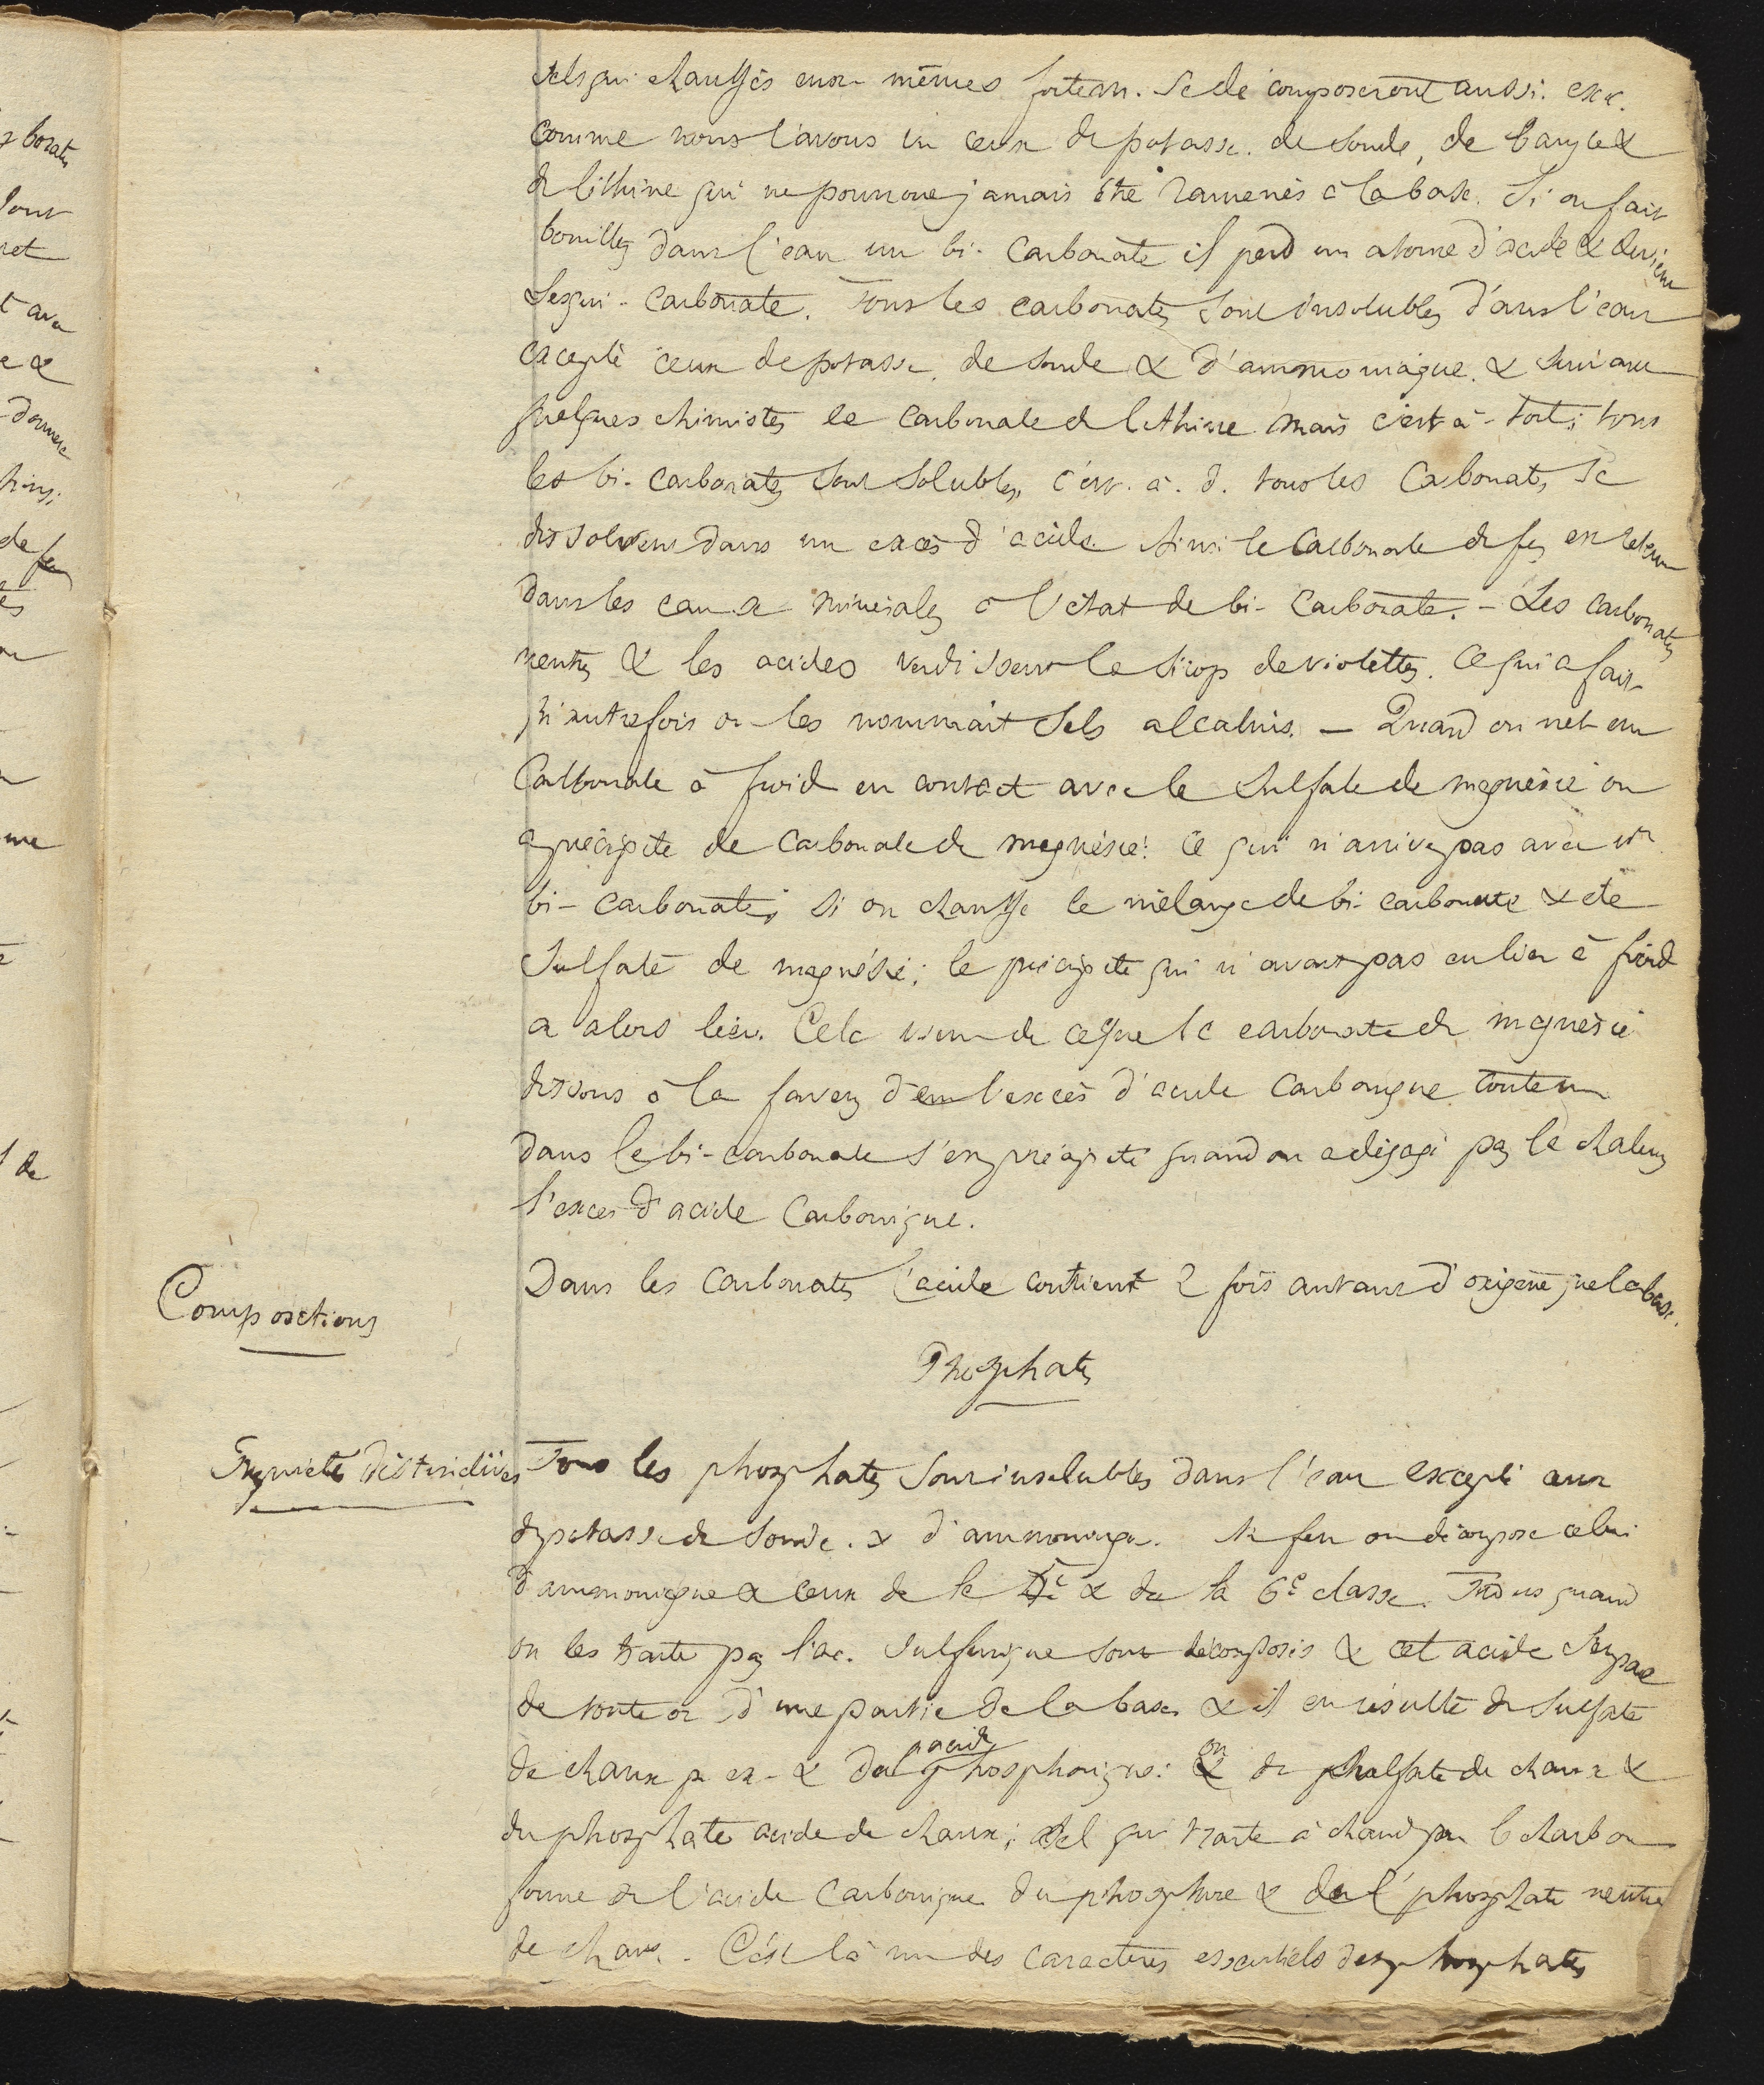 sels qui chauffés eux-mêmes fortem. se décomposeront aussi. exc.
comme nous l'avons vu ceux de potasse. de soude, de baryte &
de lithine qui ne pourront jamais être ramenés à la base. Si on fait
bouillir dans l'eau un bi-carbonate il perd un atome d'acide & devient
sesqui-carbonate. Tous les carbonates sont insolubles dans l'eau
excepté ceux de potasse, de soude & d'ammoniaque. & suivant
quelques chimistes le carbonate de lithine mais c'est à-tort; tous
les bi-carbonates sont solubles, c'est. à. d. tous les carbonates se
dissolvent dans un excès d'acide. Ainsi le carbonate de fer est retenu
dans les eaux minérales à l'état de bi-carbonate. - Les carbonates
neutres & les acides verdissent le sirop de violettes. Ce qui a fait
qu'autrefois on les nommait sels alcalins. - Quand on met un
Carbonate à froid en contact avec le sulfate de magnésie on
a précipité de carbonate de magnésie: ce qui n'arrive pas avec un
bi-carbonate; si on chauffe le mélange de bi-carbonate & de
sulfate de magnésie; le précipité qui n'avait pas eu lieu à froid
a alors lieu. Cela vient de ce que le carbonate de magnésie
dissous à la faveur de l'excès d'acide carbonique contenu
dans le bi-carbonate s'est précipité quand on a dégagé par la chaleur
l'excès d'acide Carbonique.
Compositions
Dans les carbonates l'acide contient 2 fois autant d'oxigène que la base.
Phosphates
Propriétés distinctives
Tous les phosphates sont insolubles dans l'eau excepté ceux
de potasse de soude. & d'ammoniaque. Au feu on décompose celui
d'ammoniaque & ceux de la & de la 6e classe. Tous quand
on les traite par l'ac. sulfurique sont décomposés & cet acide s'empare
de toute ou d'une partie de la base, & il en résulte du sulfate
de chaux p. ex- & de l'acide phosphorique: ou du sulfate de chaux &
du phosphate acide de chaux; sel qui traité à chaud par le charbon
forme de l'acide carbonique du phosphore & du phosphate neutre
de chaux. C'est là un des caractères essentiels des phosphates